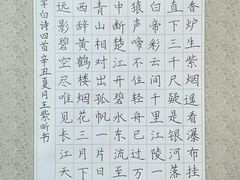 香炉生紫烟遥看瀑布挂
直下三千尺疑是银河落
白帝彩云间千里江陵一
猿声啼不住轻舟已过万
中断楚江开碧水东流至
青山相对出孤帆一片
西辞黄鹤楼烟花三月下
远影碧空尽唯见长江天
李白诗四首辛丑夏月王紫昕书